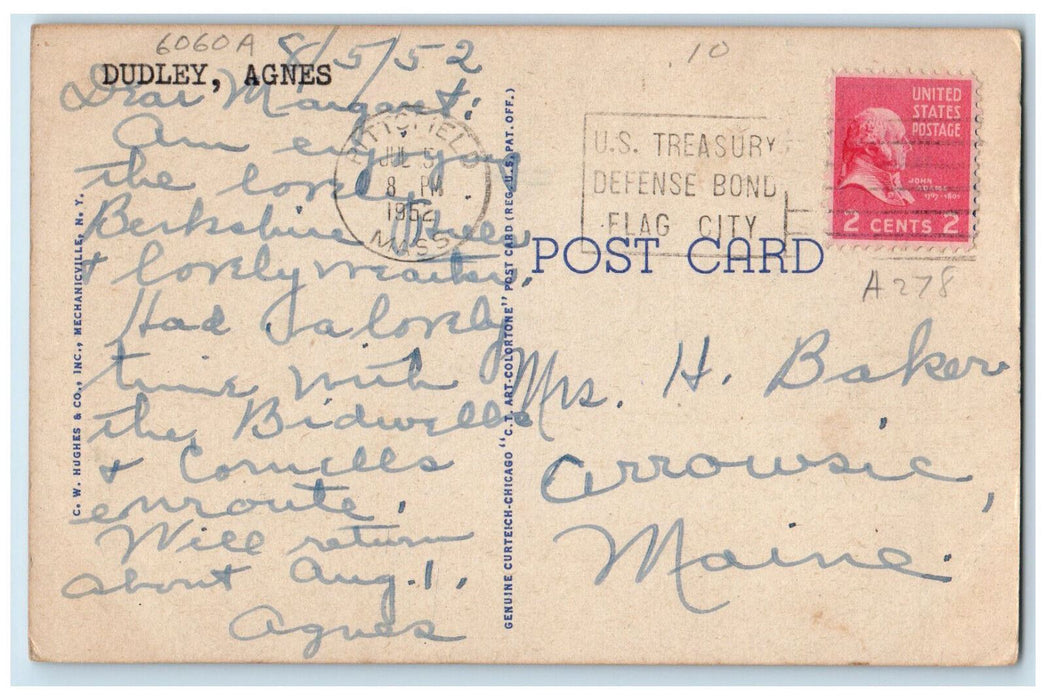 6060A
8/5/52
10
DUDLEY, AGNES
Dear Margaret:
Am enjoying
the lovely
Berkshire
& lovely weather.
Had a lovely
time with
the Bidwells
& Cornells
enroute.
Will return
about Aug. 1.
Agnes
PITTSFIELD
JUL 5
8 PM
1952
MASS
U.S. TREASURY
DEFENSE BOND
FLAG CITY
UNITED
STATES
POSTAGE
JOHN
ADAMS
1797-1801
2 CENTS 2
A278
POST CARD
Mrs. H. Baker
Arrowsic,
Maine.
C. W. HUGHES & CO., INC., MECHANICVILLE, N. Y.
GENUINE CURTEICH-CHICAGO "C. T. ART-COLORTONE" POST CARD (REG. U. S. PAT. OFF.)